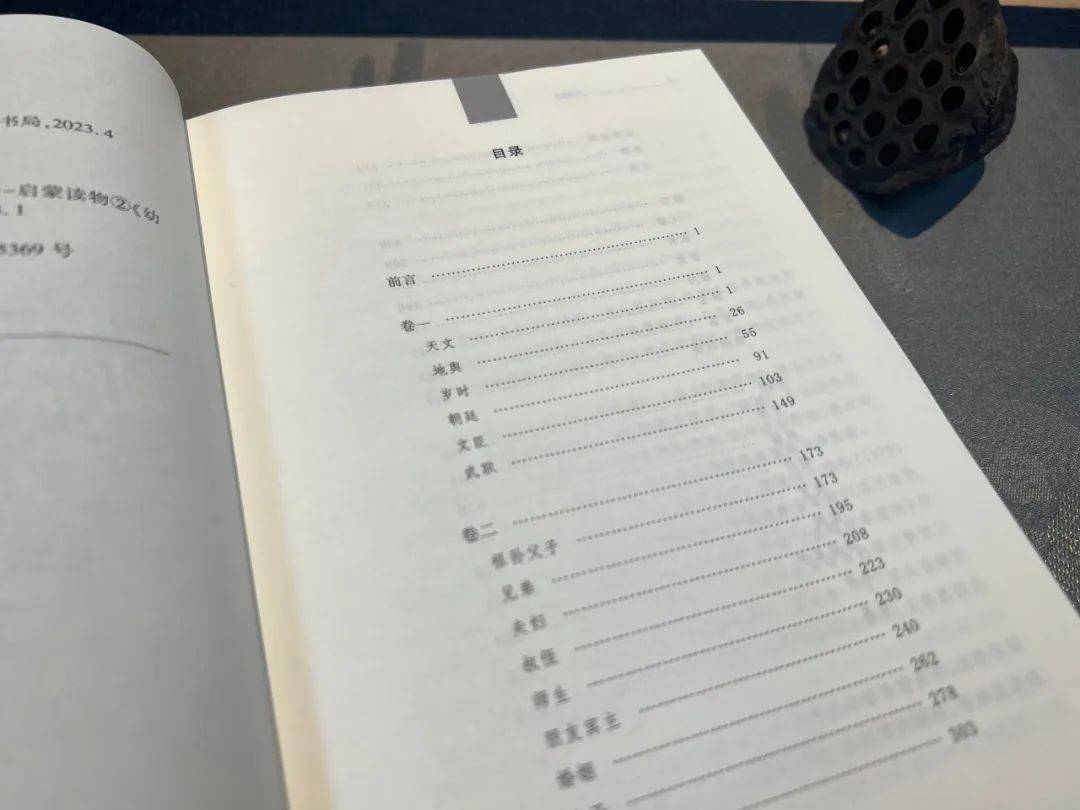 书局,2023.4
—启蒙读物②《幼
.1
5369 号
目录
前言 …… 1
卷一 …… 1
天文 …… 1
地舆 …… 26
岁时 …… 55
朝廷 …… 91
文臣 …… 103
武职 …… 149
卷二 …… 173
祖孙父子 …… 173
兄弟 …… 195
夫妇 …… 208
叔侄 …… 223
师生 …… 230
朋友宾主 …… 240
婚姻 …… 262
…… 278
…… 303